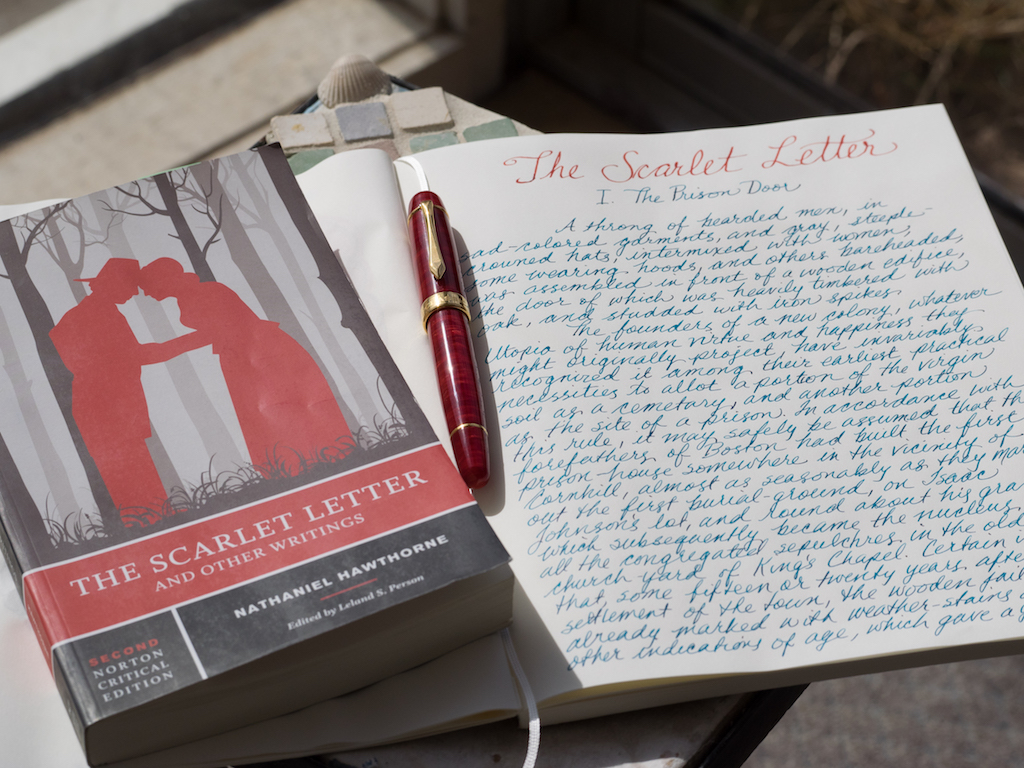 THE SCARLET LETTER
AND OTHER WRITINGS
NATHANIEL HAWTHORNE
Edited by Leland S. Person
SECOND
NORTON
CRITICAL
EDITION
The Scarlet Letter
I. The Prison Door
A throng of bearded men, in
ad-colored garments, and gray, steeple-
crowned hats, intermixed with women,
some wearing hoods, and others bareheaded,
was assembled in front of a wooden edifice,
the door of which was heavily timbered with
oak, and studded with iron spikes.
The founders of a new colony, whatever
Utopia of human virtue and happiness they
might originally project, have invariably
recognized it among their earliest practical
necessities to allot a portion of the virgin
soil as a cemetary, and another portion
as the site of a prison. In accordance with
this rule, it may safely be assumed that th
forefathers of Boston had built the first
prison-house somewhere in the vicinity of
Cornhill, almost as seasonably as they mar
out the first burial-ground, on Isaac
Johnson's lot, and round about his gra
which subsequently became the nucleus
all the congregated sepulchres in the old
church-yard of King's Chapel. Certain i
that, some fifteen or twenty years afte
settlement of the town, the wooden jail
already marked with weather-stains a
other indications of age, which gave a